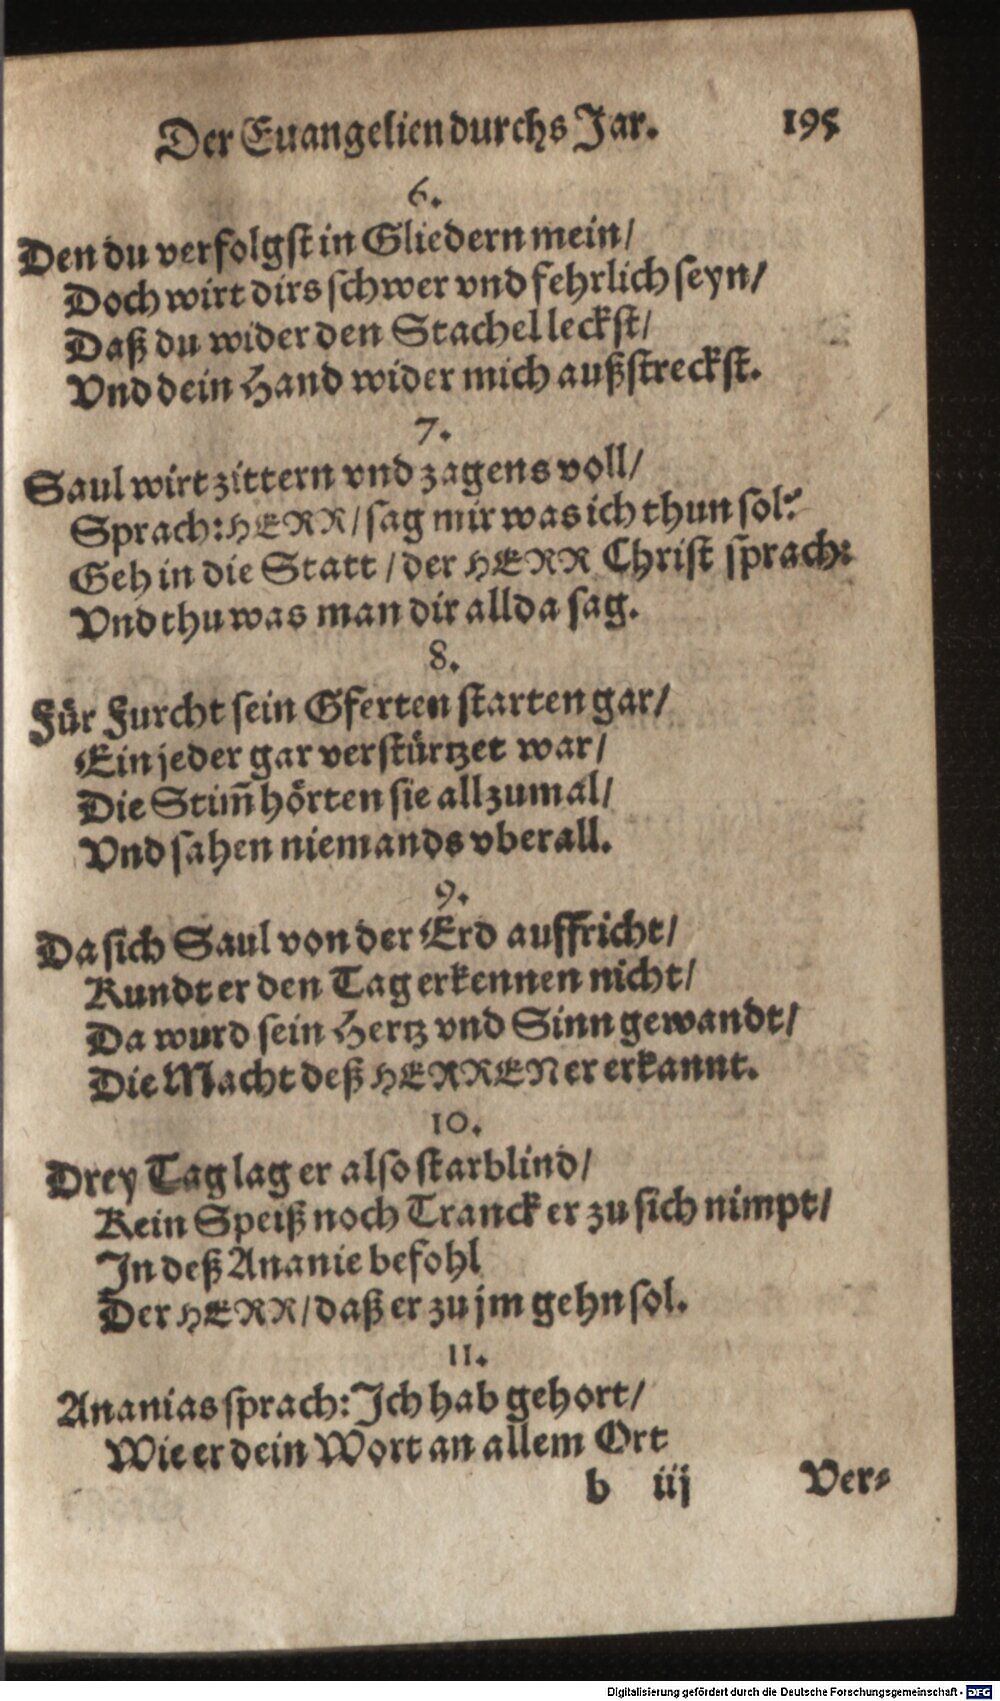 Der Euangelien durchs Jar. 195
6.
Den du verfolgst in Gliedern mein/
Doch wirt dirs schwer vnd fehrlich seyn/
Daß du wider den Stachel leckst/
Vnd dein Hand wider mich außstreckst.
7.
Saul wirt zittern vnd zagens voll/
Sprach: HERR/ sag mir was ich thun sol?
Geh in die Statt/ der HERR Christ sprach:
Vnd thu was man dir allda sag.
8.
Für Furcht sein Gferten starten gar/
Ein jeder gar verstürtzet war/
Die Stim̃ hörten sie allzumal/
Vnd sahen niemands vberall.
9.
Da sich Saul von der Erd auffricht/
Kundt er den Tag erkennen nicht/
Da wurd sein Hertz vnd Sinn gewandt/
Die Macht deß HERREN er erkannt.
10.
Drey Tag lag er also starblind/
Kein Speiß noch Tranck er zu sich nimpt/
In deß Ananie befohl
Der HERR/ daß er zu jm gehn sol.
11.
Ananias sprach: Ich hab gehort/
Wie er dein Wort an allem Ort
b iij Ver-
Digitalisierung gefördert durch die Deutsche Forschungsgemeinschaft - DFG